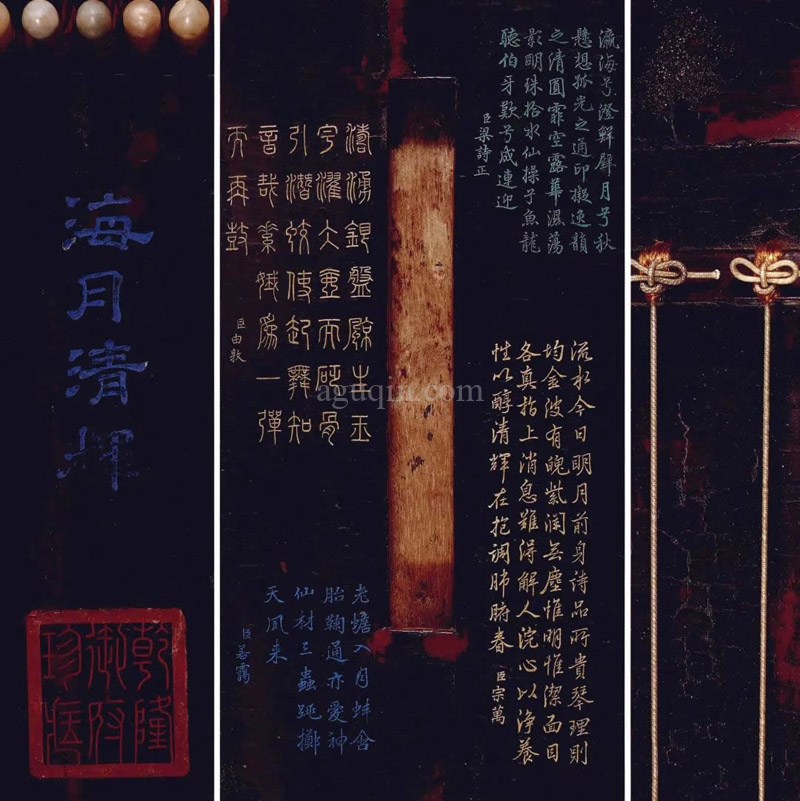 海月清煇
乾隆
御府
珍藏
瀛海兮澄鮮璧月兮秋
懸想孤光之遍印擬逸韻
之清圓霏空露華濕蕩
影明珠拾水仙操兮魚龍
聽伯牙歎兮成連迎
臣梁詩正
濤湧銀盤驗古玉
宇濯大壺而砭骨
引潛蛟使起舞知
音哉素娥為一彈
而再鼓
臣由敦
流水今日明月前身詩品所貴琴理則
均金波有晚紫瀾無塵惟明惟潔面目
各真指上消息難得解人浣心以淨養
性以醇清輝在抱調肺腑春
臣宗萬
老蟾入月蚌含
胎鞠通亦愛神
仙材三蟲跳擲
天風來
臣若靄
aguqin.com